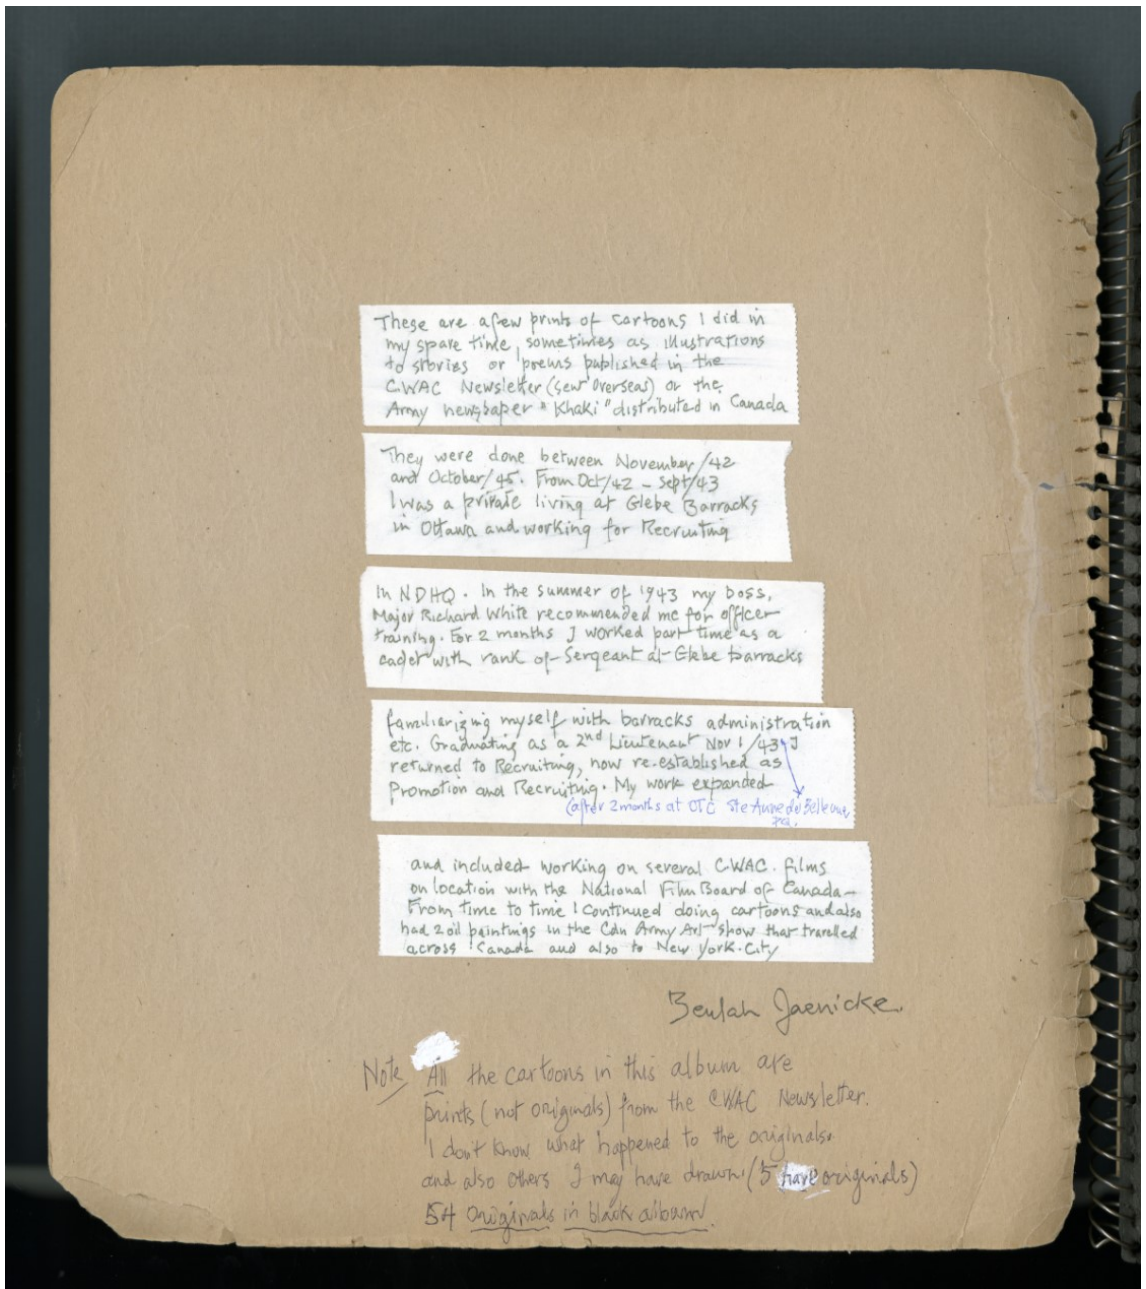 These are a few prints of cartoons I did in
my spare time, sometimes as illustrations
to stories or poems published in the
CWAC Newsletter (sent overseas) or the
Army newspaper "Khaki" distributed in Canada
They were done between November/42
and October/45. From Oct/42 - Sept/43
I was a private living at Glebe Barracks
in Ottawa and working for Recruiting
in NDHQ. In the summer of 1943 my boss,
Major Richard White recommended me for officer
training. For 2 months I worked part time as a
cadet with rank of Sergeant at Glebe Barracks
familiarizing myself with barracks administration
etc. Graduating as a 2nd Lieutenant Nov 1/43 I
returned to Recruiting, now re-established as
Promotion and Recruiting. My work expanded
(after 2 months at OTC Ste Anne de Bellevue,
and included working on several CWAC films
on location with the National Film Board of Canada-
From time to time I continued doing cartoons and also
had 2 oil paintings in the Cdn Army Art show that travelled
across Canada and also to New York City
Beulah Jaenicke.
Note All the cartoons in this album are
prints (not originals) from the CWAC Newsletter.
I don't know what happened to the originals.
and also others I may have drawn. (5 have originals)
54 originals in black album.